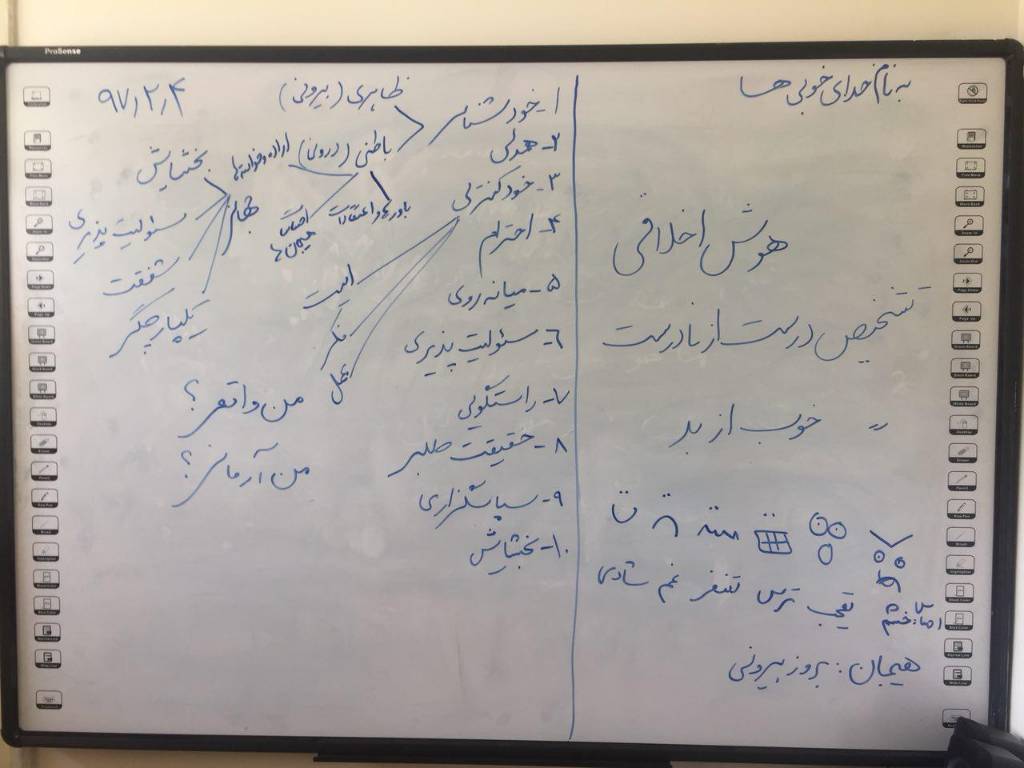 ProSense
به نام خدای خوبی ها
هوش اخلاقی
تشخیص درست از نادرست
〃 خوب از بد
احساس: خشم تعجب ترس تنفر غم شادی
هیجان: بروز بیرونی
۹۷,۲,۴
۱- خودشناسی
ظاهری (بیرونی)
باطنی (درونی)
باورها و اعتقادات
احساسات
هیجان ها
۲- همدلی
۳- خودکنترلی
احساسات
فکر
عمل
۴- احترام
۵- میانه روی
۶- مسئولیت پذیری
۷- راستگویی
۸- حقیقت طلبی
۹- سپاسگزاری
۱۰- بخشایش
بخشایش
مسئولیت پذیری
شفقت
یکپارچگی
من واقعی؟
من آرمانی؟